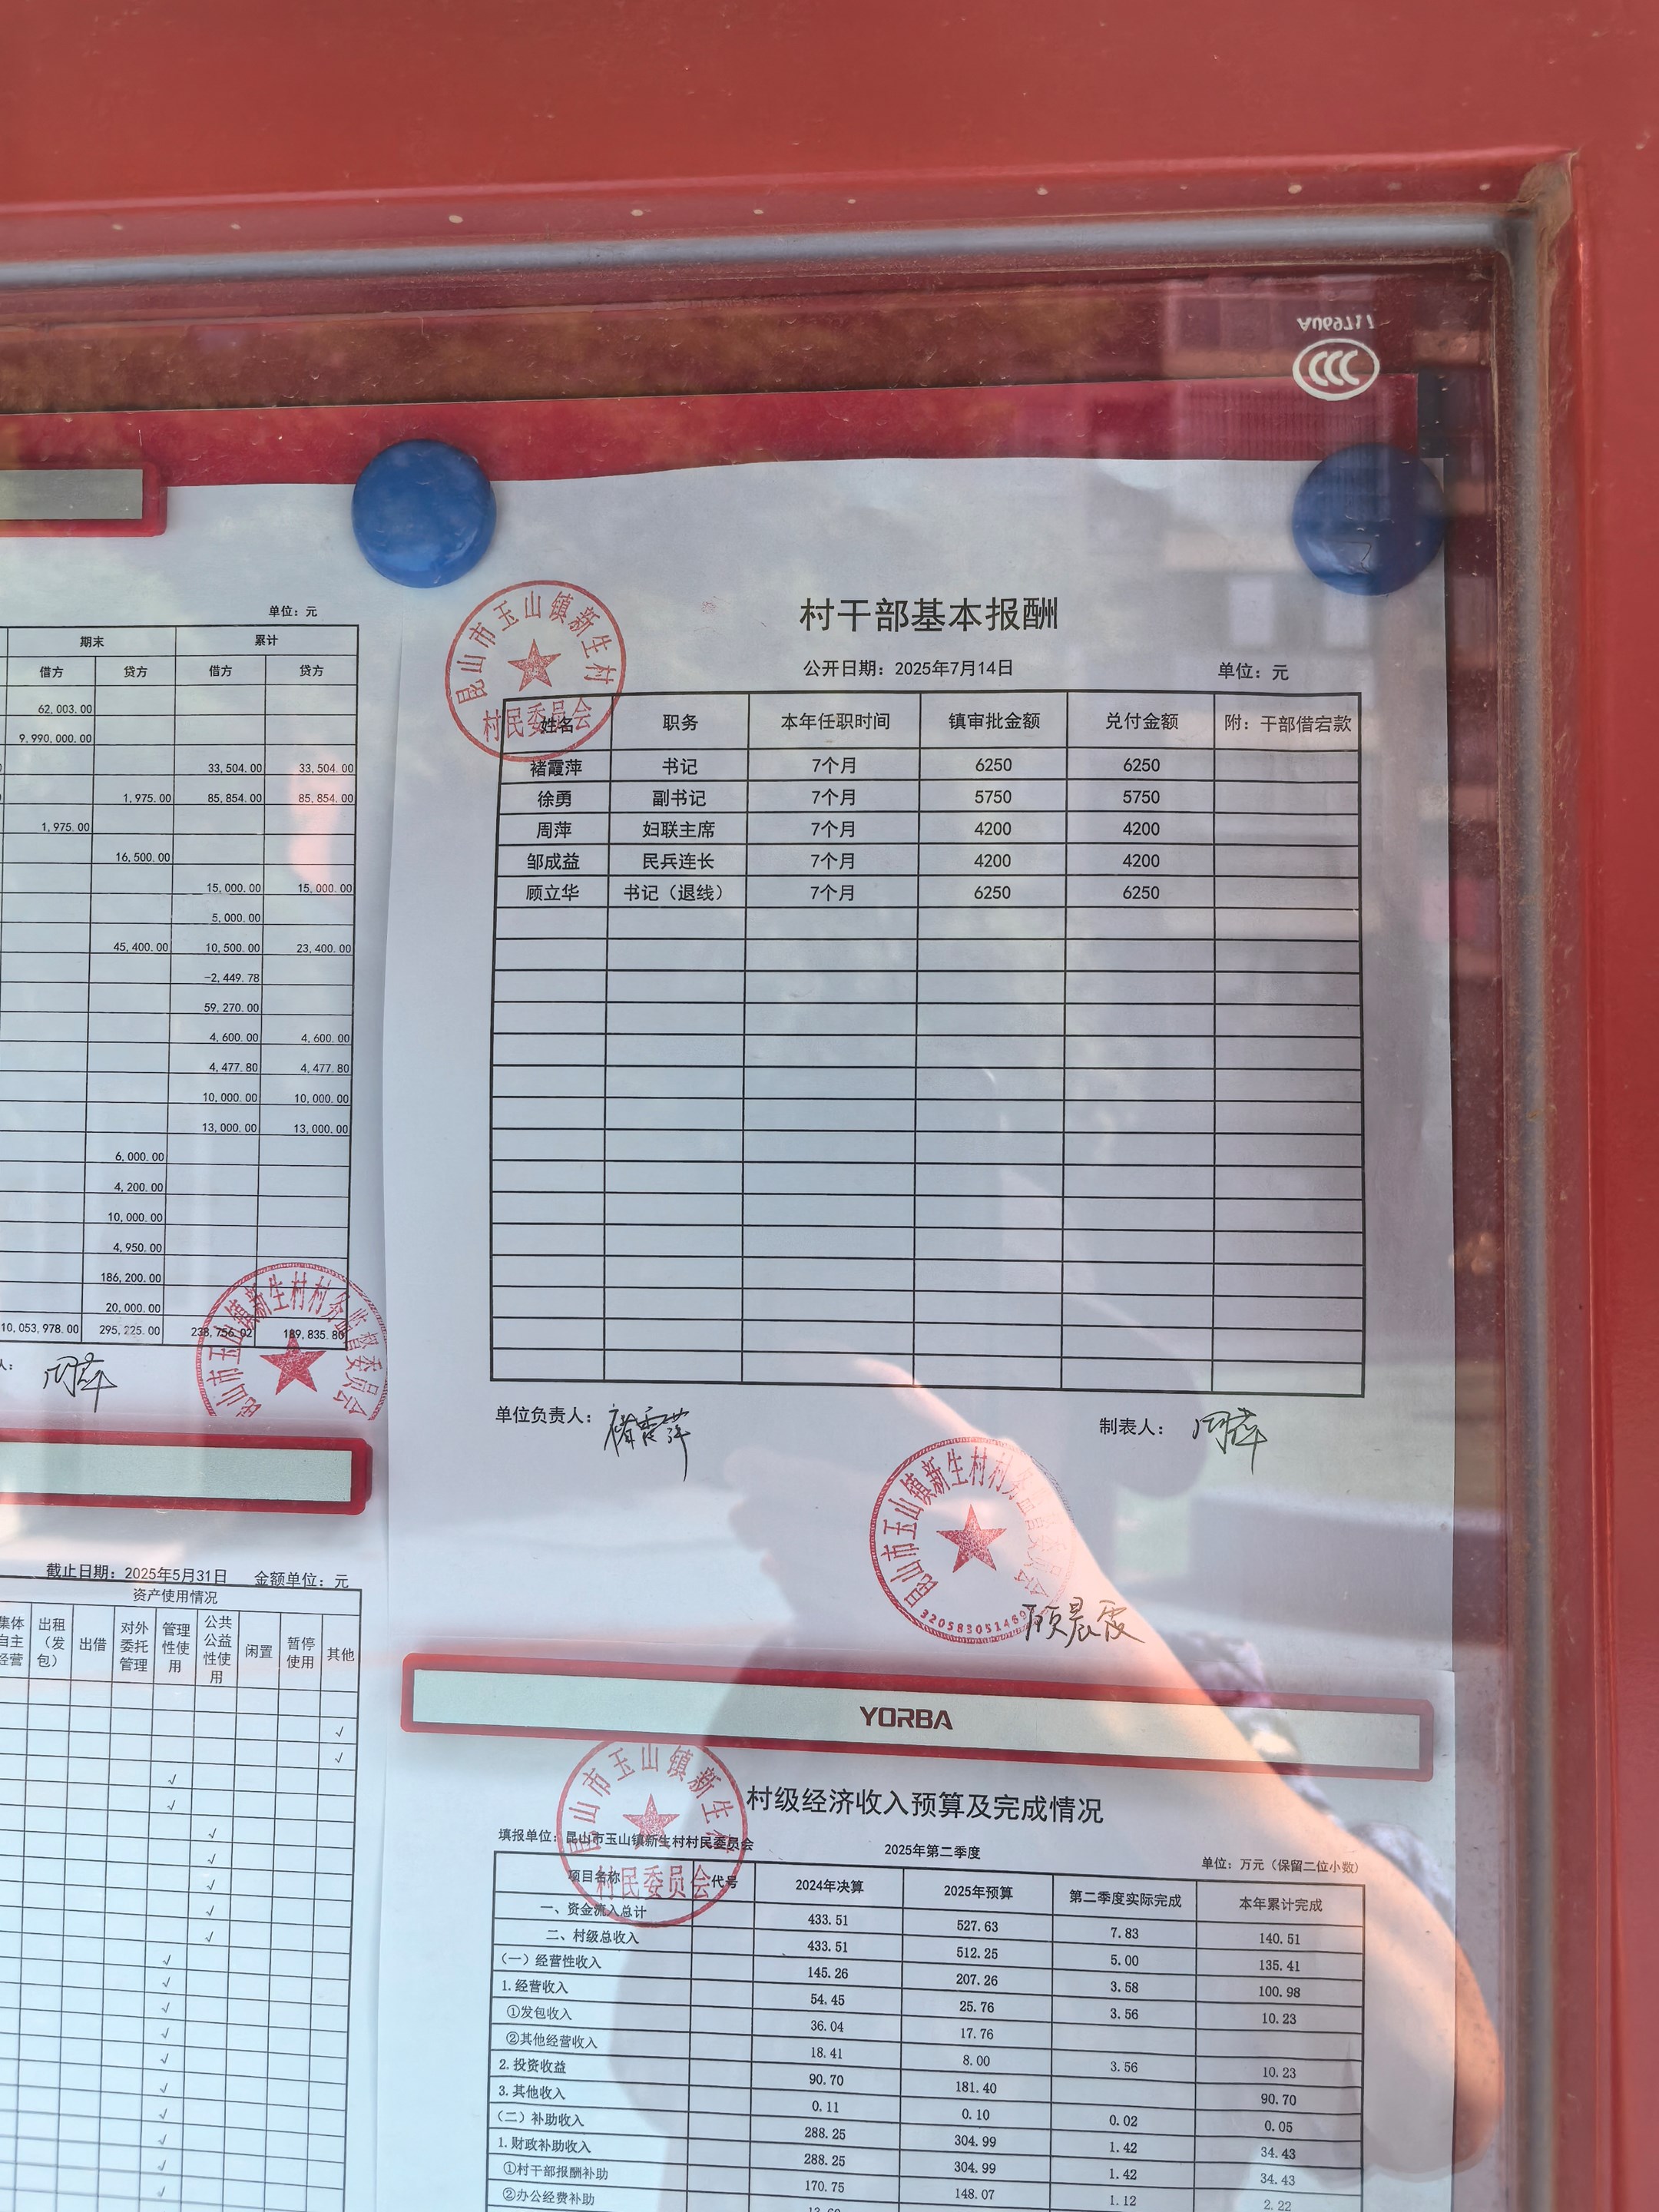 AU69717
单位：元
期末 累计
借方 贷方 借方 贷方
62,003.00
9,990,000.00
33,504.00 33,504.00
1,975.00 85,854.00 85,854.00
1,975.00
16,500.00
15,000.00 15,000.00
5,000.00
45,400.00 10,500.00 23,400.00
-2,449.78
59,270.00
4,600.00 4,600.00
4,477.80 4,477.80
10,000.00 10,000.00
13,000.00 13,000.00
6,000.00
4,200.00
10,000.00
4,950.00
186,200.00
20,000.00
10,053,978.00 295,225.00 238,756.02 189,835.80
人： 周萍
昆山市玉山镇新生村村务监督委员会
截止日期：2025年5月31日 金额单位：元
资产使用情况
集体自主经营 出租（发包） 出借 对外委托管理 管理性使用 公共公益性使用 闲置 暂停使用 其他
昆山市玉山镇新生村
村民委员会
村干部基本报酬
公开日期：2025年7月14日 单位：元
姓名 职务 本年任职时间 镇审批金额 兑付金额 附：干部借宕款
褚霞萍 书记 7个月 6250 6250
徐勇 副书记 7个月 5750 5750
周萍 妇联主席 7个月 4200 4200
邹成益 民兵连长 7个月 4200 4200
顾立华 书记（退线） 7个月 6250 6250
单位负责人：褚霞萍 制表人：周萍
昆山市玉山镇新生村村务监督委员会
顾晨霞
YORBA
昆山市玉山镇新生村
村民委员会
村级经济收入预算及完成情况
填报单位：昆山市玉山镇新生村村民委员会 2025年第二季度 单位：万元（保留二位小数）
项目名称 代号 2024年决算 2025年预算 第二季度实际完成 本年累计完成
一、资金流入总计 433.51 527.63 7.83 140.51
二、村级总收入 433.51 512.25 5.00 135.41
（一）经营性收入 145.26 207.26 3.58 100.98
1.经营收入 54.45 25.76 3.56 10.23
①发包收入 36.04 17.76
②其他经营收入 18.41 8.00 3.56 10.23
2.投资收益 90.70 181.40 90.70
3.其他收入 0.11 0.10 0.02 0.05
（二）补助收入 288.25 304.99 1.42 34.43
1.财政补助收入 288.25 304.99 1.42 34.43
①村干部报酬补助 170.75 148.07 1.12 2.22
②办公经费补助